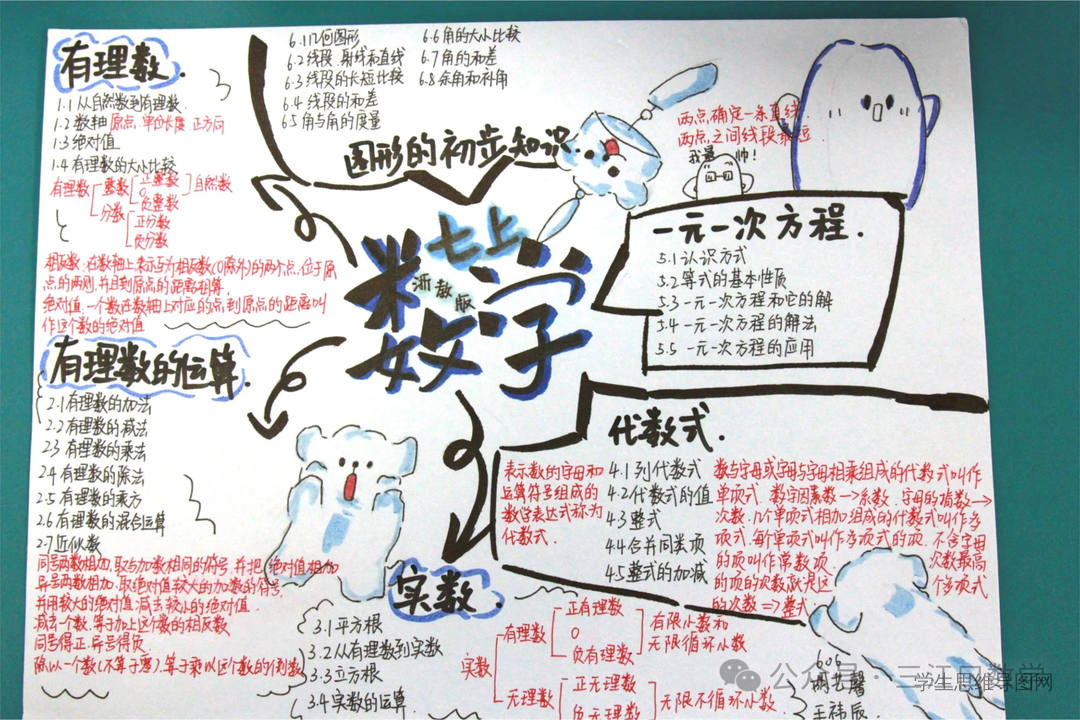 有理数.
1.1 从自然数到有理数.
1.2 数轴 原点、单位长度、正方向
1.3 绝对值
1.4 有理数的大小比较
有理数 整数 正整数 自然数
0
负整数
分数 正分数
负分数
相反数:在数轴上,表示互为相反数(0除外)的两个点,位于原
点的两侧,并且到原点的距离相等.
绝对值:一个数在数轴上对应的点到原点的距离叫
作这个数的绝对值
有理数的运算.
2.1 有理数的加法
2.2 有理数的减法
2.3 有理数的乘法
2.4 有理数的除法
2.5 有理数的乘方
2.6 有理数的混合运算
2.7 近似数
同号两数相加,取与加数相同的符号,并把绝对值相加
异号两数相加,取绝对值较大的加数的符号,
并用较大的绝对值,减去较小的绝对值.
减去一个数,等于加上这个数的相反数
同号得正,异号得负
除以一个数(不等于零),等于乘以这个数的倒数
6.1 几何图形
6.2 线段、射线和直线
6.3 线段的长短比较
6.4 线段的和差
6.5 角与角的度量
6.6 角的大小比较
6.7 角的和差
6.8 余角和补角
图形的初步知识.
两点确定一条直线.
两点之间线段最短.
我最帅!
七上
浙教版
数学
一元一次方程.
5.1 认识方式
5.2 等式的基本性质
5.3 一元一次方程和它的解
5.4 一元一次方程的解法
5.5 一元一次方程的应用
代数式.
表示数的字母和
运算符号组成的
数学表达式称为
代数式.
4.1 列代数式
4.2 代数式的值
4.3 整式
4.4 合并同类项
4.5 整式的加减
数与字母或字母与字母相乘组成的代数式叫作
单项式.数字因素数→系数,字母的指数→
次数.几个单项式相加组成的代数式叫作多
项式.每个单项式叫作多项式的项.不含字母
的项叫作常数项.次数最高
的项的次数就是这个多项式
的次数⇒整式
实数.
3.1 平方根
3.2 从有理数到实数
3.3 立方根
3.4 实数的运算
实数 有理数 正有理数
0
负有理数
有限小数和
无限循环小数
无理数 正无理数
负无理数
无限不循环小数
606
王祎辰
公众号·三江口数学
学生思维导图网